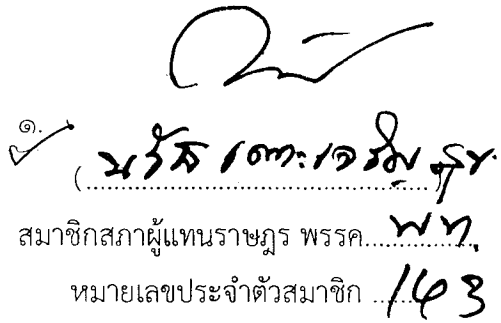 ๑.
(นวัธ เตาะเจริญสุข)
สมาชิกสภาผู้แทนราษฎร พรรค พท.
หมายเลขประจำตัวสมาชิก 163